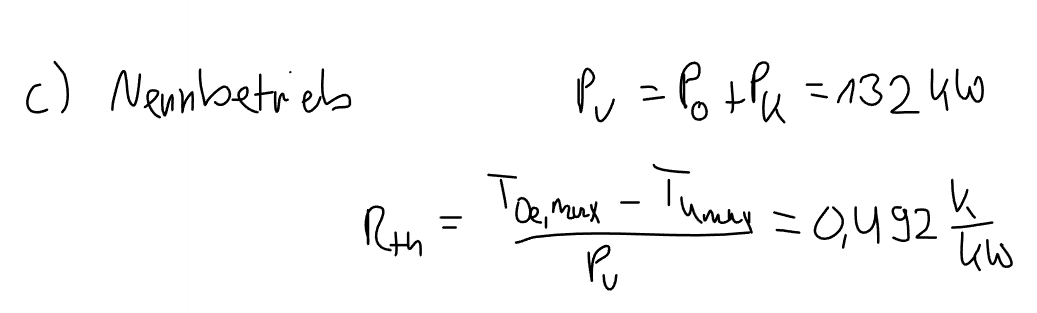 c) Nennbetrieb P_v = P_0 + P_k = 132 kW
R_th = (T_Oe,max - T_Umax) / P_v = 0,492 K/kW